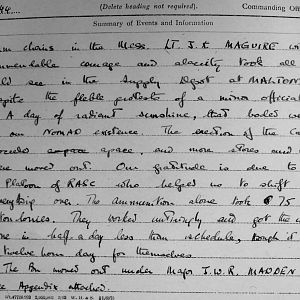 44
(Delete heading not required).
Commanding Offi
Summary of Events and Information
chains in the Mess. LT. J.K MAGUIRE w
mmendable courage and alacrity took all
ld see in the Supply Depot at MALTON
spite the feeble protests of a minor official
A day of radiant sunshine, that boded we
our NOMAD existence. The erection of the Ca
space apace, and more stores and
moved out. Our gratitude is due to
Platoon of RASC who helped us to shift
over. The ammunition alone took 75
lorries. They worked untiringly and got the
in half-a-day less than schedule, though it
twelve hour day for themselves.
The Bn moved out under Major J.W.R. MADDEN
Appendix attached.